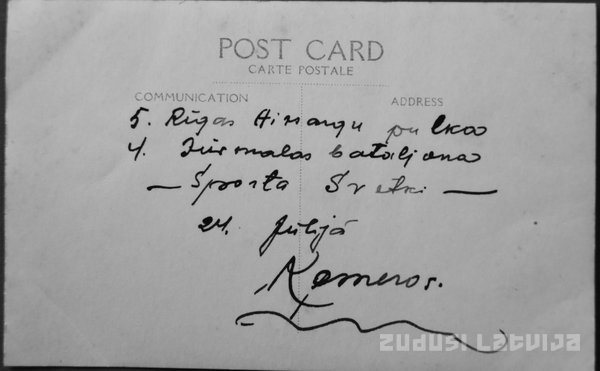 POST CARD
CARTE POSTALE
COMMUNICATION
ADDRESS
5. Rīgas Aizsargu pulka
4. Jūrmalas bataljona
— Sporta Svētki —
24. Jūlijā
Ķemeros.
ZUDUSI LATVIJA